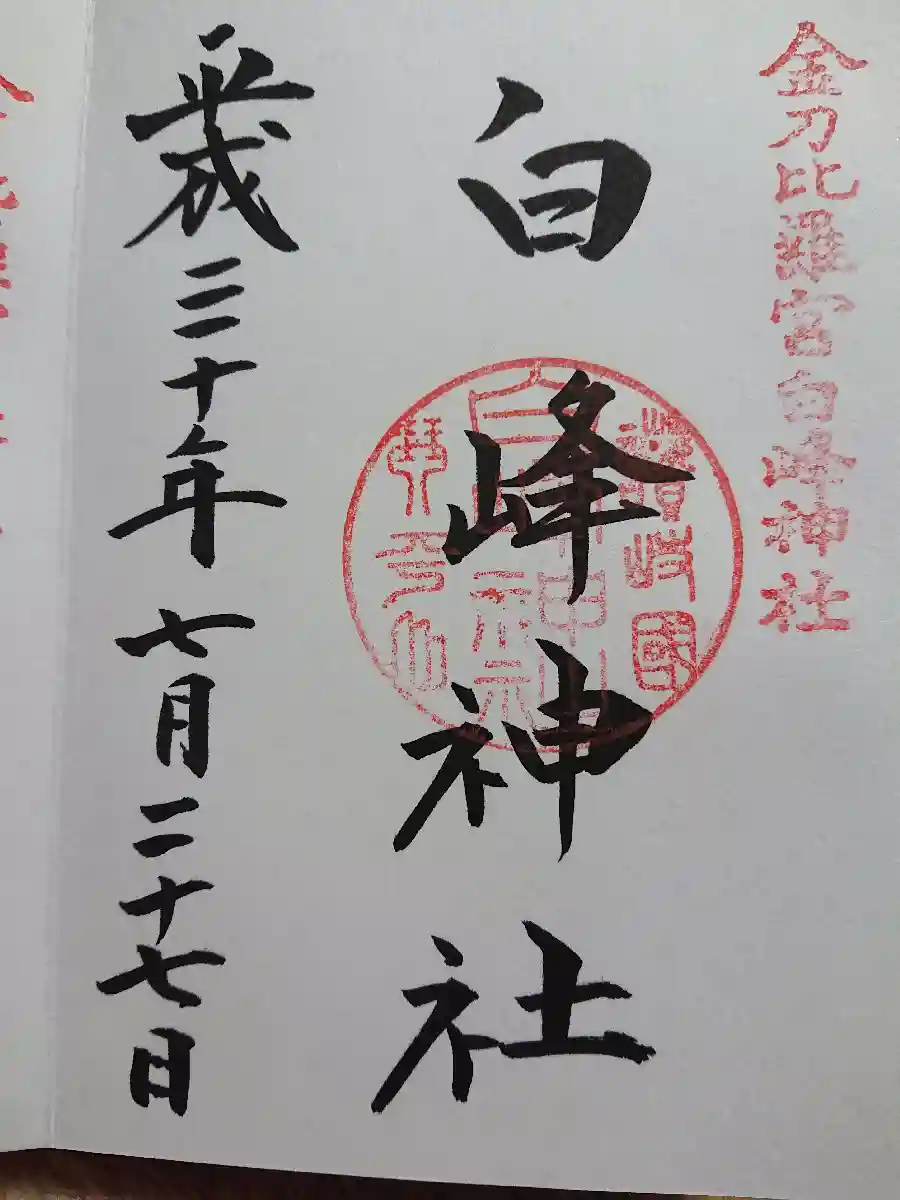 金刀比羅宮白峰神社
白峰神社
讃岐國
白峰神社
琴平山
平成三十年七月二十七日